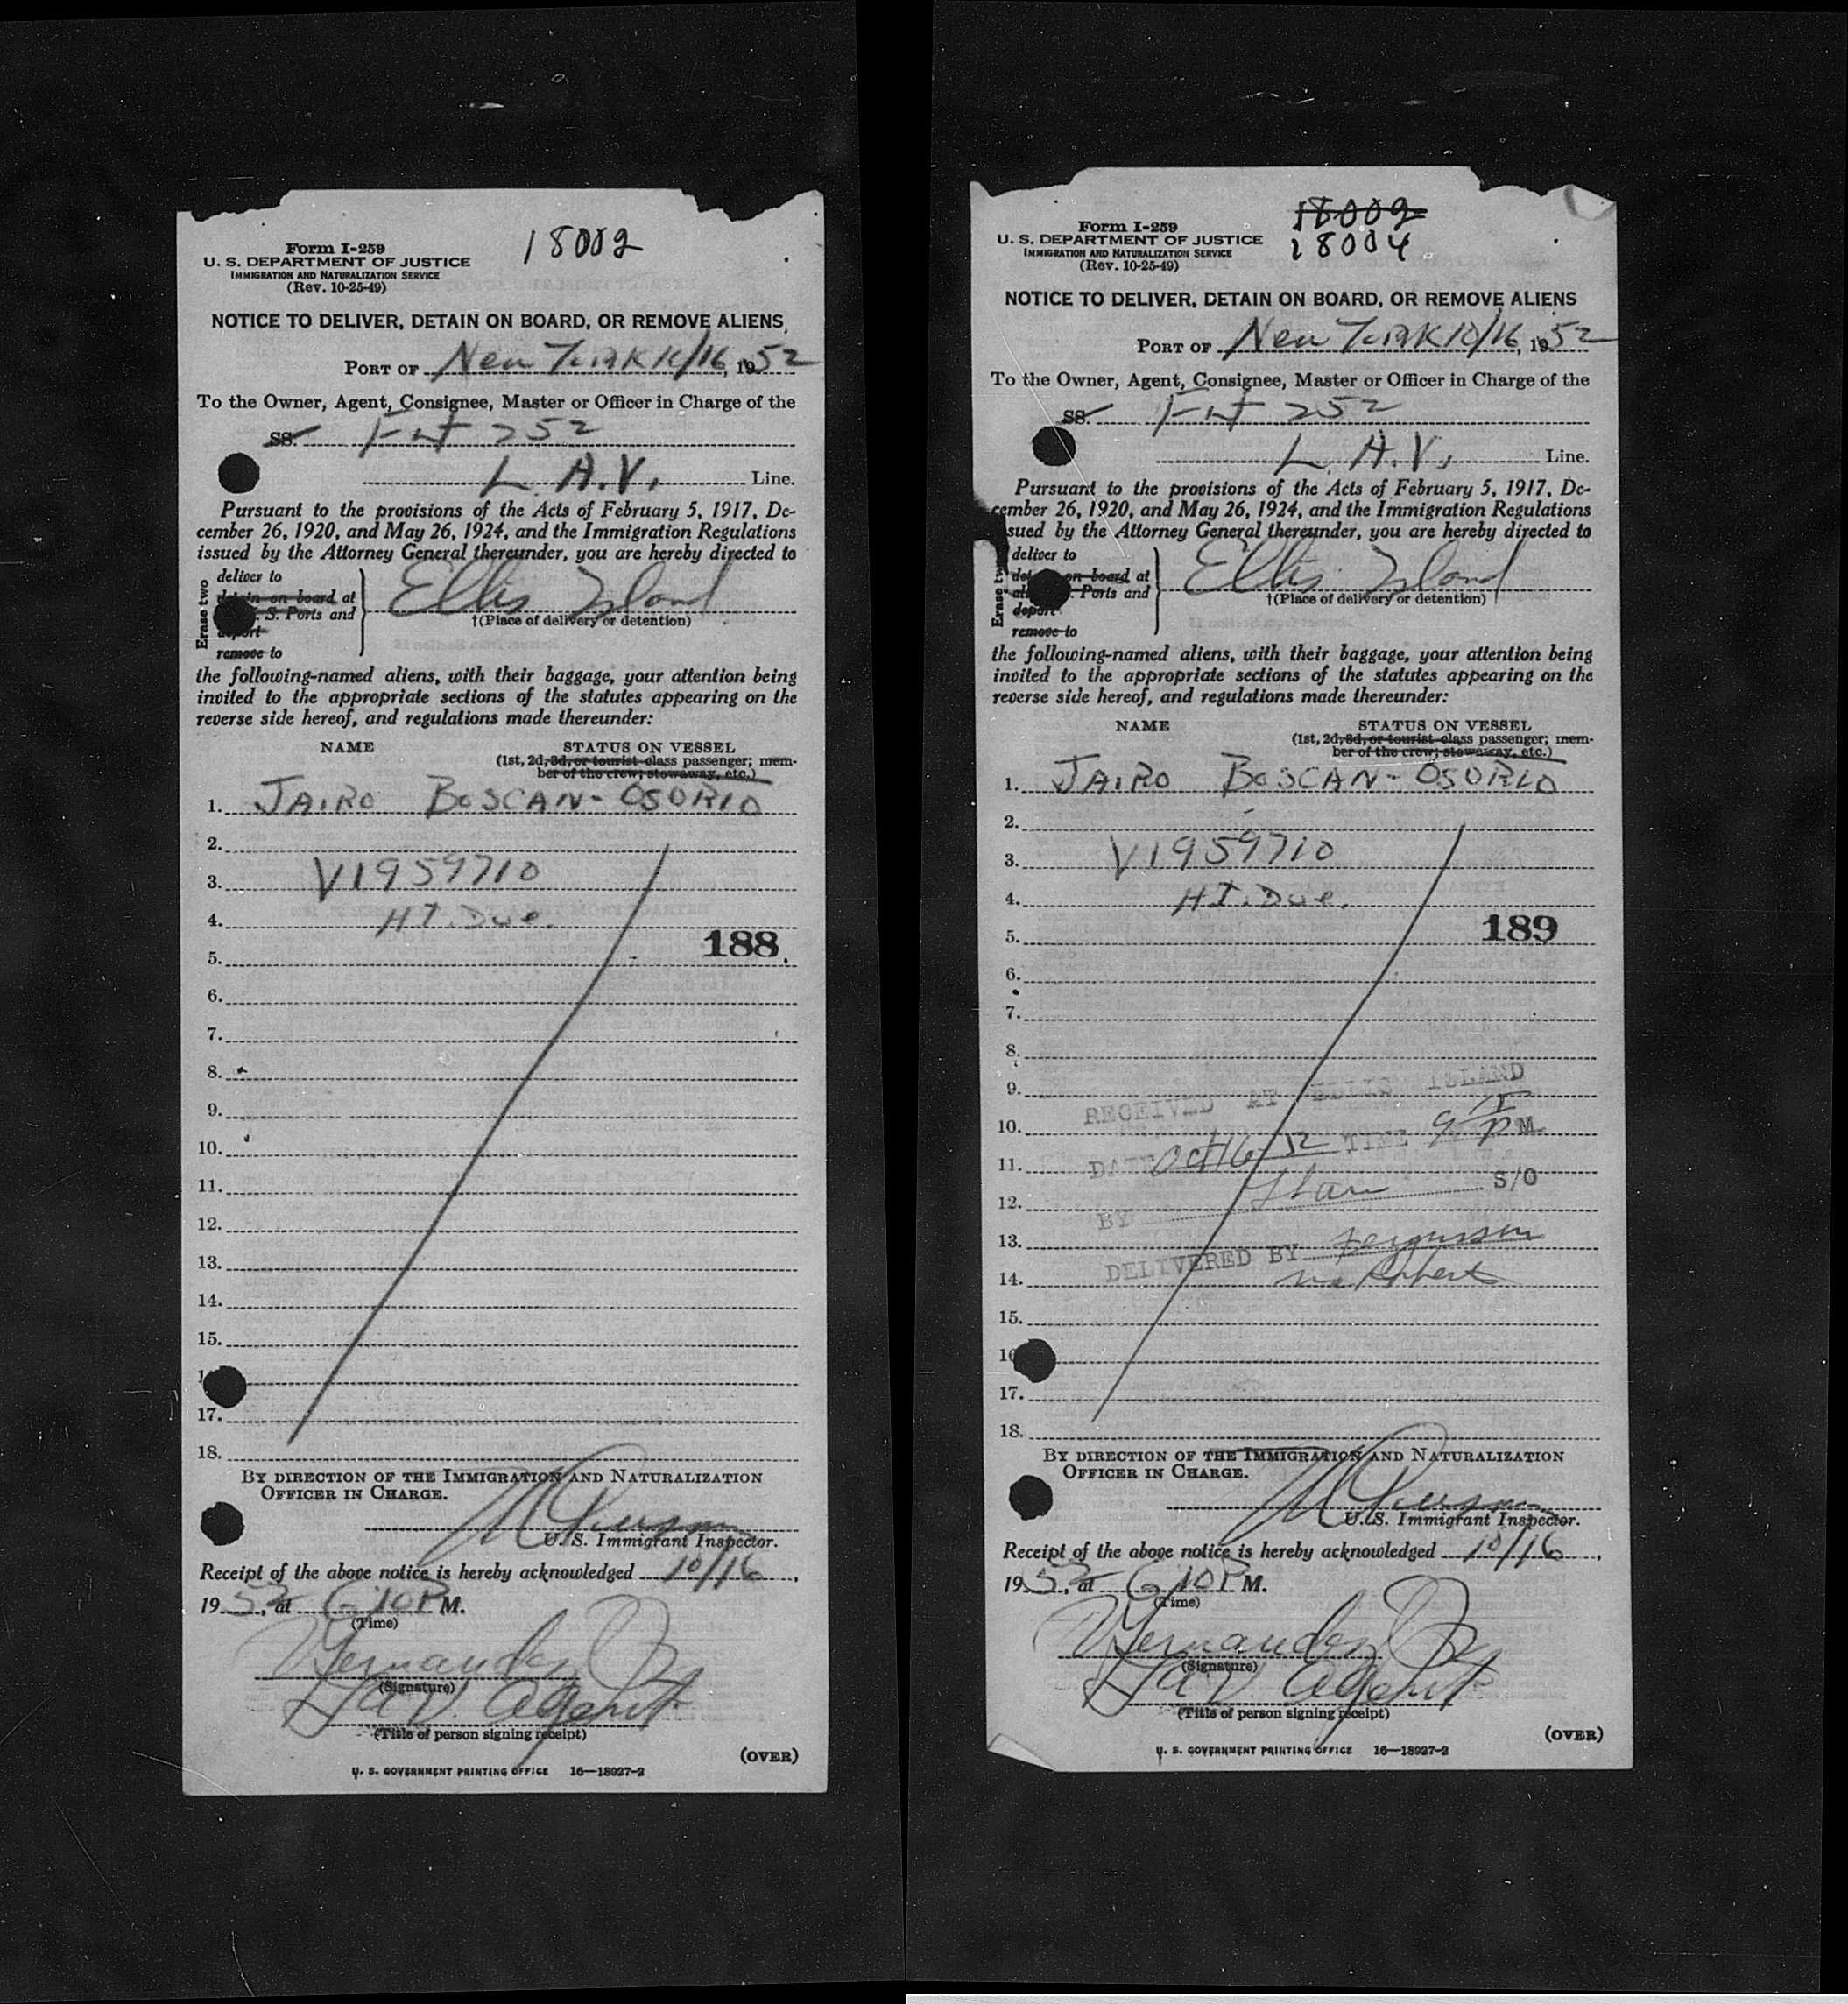 Form I-259
U. S. DEPARTMENT OF JUSTICE
IMMIGRATION AND NATURALIZATION SERVICE
(Rev. 10-25-49)
18002
NOTICE TO DELIVER, DETAIN ON BOARD, OR REMOVE ALIENS
PORT OF New York 10/16, 1952
To the Owner, Agent, Consignee, Master or Officer in Charge of the
SS. Flt 252
L. A. V. Line.
Pursuant to the provisions of the Acts of February 5, 1917, De-
cember 26, 1920, and May 26, 1924, and the Immigration Regulations
issued by the Attorney General thereunder, you are hereby directed to
Erase two
deliver to
detain on board at
S. Ports and
deport
remove to
Ellis Island
†(Place of delivery or detention)
the following-named aliens, with their baggage, your attention being
invited to the appropriate sections of the statutes appearing on the
reverse side hereof, and regulations made thereunder:
NAME STATUS ON VESSEL
(1st, 2d, 3d, or tourist class passenger; mem-
ber of the crew; stowaway, etc.)
1. JAIRO BOSCAN-OSORIO
2.
3. V1959710
4. H.T. Due.
188
5.
6.
7.
8.
9.
10.
11.
12.
13.
14.
15.
17.
18.
BY DIRECTION OF THE IMMIGRATION AND NATURALIZATION
OFFICER IN CHARGE.
U. S. Immigrant Inspector.
Receipt of the above notice is hereby acknowledged 10/16,
1952, at 6:10 P M.
(Time)
Hernandez
(Signature)
LAV Agent
(Title of person signing receipt)
(OVER)
U. S. GOVERNMENT PRINTING OFFICE 16—18927-2
Form I-259
U. S. DEPARTMENT OF JUSTICE
IMMIGRATION AND NATURALIZATION SERVICE
(Rev. 10-25-49)
18002
18004
NOTICE TO DELIVER, DETAIN ON BOARD, OR REMOVE ALIENS
PORT OF New York 10/16, 1952
To the Owner, Agent, Consignee, Master or Officer in Charge of the
SS. Flt 252
L. A. V. Line.
Pursuant to the provisions of the Acts of February 5, 1917, De-
cember 26, 1920, and May 26, 1924, and the Immigration Regulations
ssued by the Attorney General thereunder, you are hereby directed to
Erase tw
deliver to
on board at
Ports and
deport
remove to
Ellis Island
†(Place of delivery or detention)
the following-named aliens, with their baggage, your attention being
invited to the appropriate sections of the statutes appearing on the
reverse side hereof, and regulations made thereunder:
NAME STATUS ON VESSEL
(1st, 2d, 3d, or tourist class passenger; mem-
ber of the crew; stowaway, etc.)
1. JAIRO BOSCAN-OSORIO
2.
3. V1959710
4. H.T. Due.
189
5.
6.
7.
8.
9.
RECEIVED AT ELLIS ISLAND
10.
DATE Oct 16/52 TIME 9 15 P M
11.
S/O
12.
BY
13.
DELIVERED BY Fergusson
14.
15.
16
17.
18.
BY DIRECTION OF THE IMMIGRATION AND NATURALIZATION
OFFICER IN CHARGE.
U. S. Immigrant Inspector.
Receipt of the above notice is hereby acknowledged 10/16,
1952, at 6:10 P M.
(Time)
Hernandez
(Signature)
LAV Agent
(Title of person signing receipt)
(OVER)
U. S. GOVERNMENT PRINTING OFFICE 16—18927-2